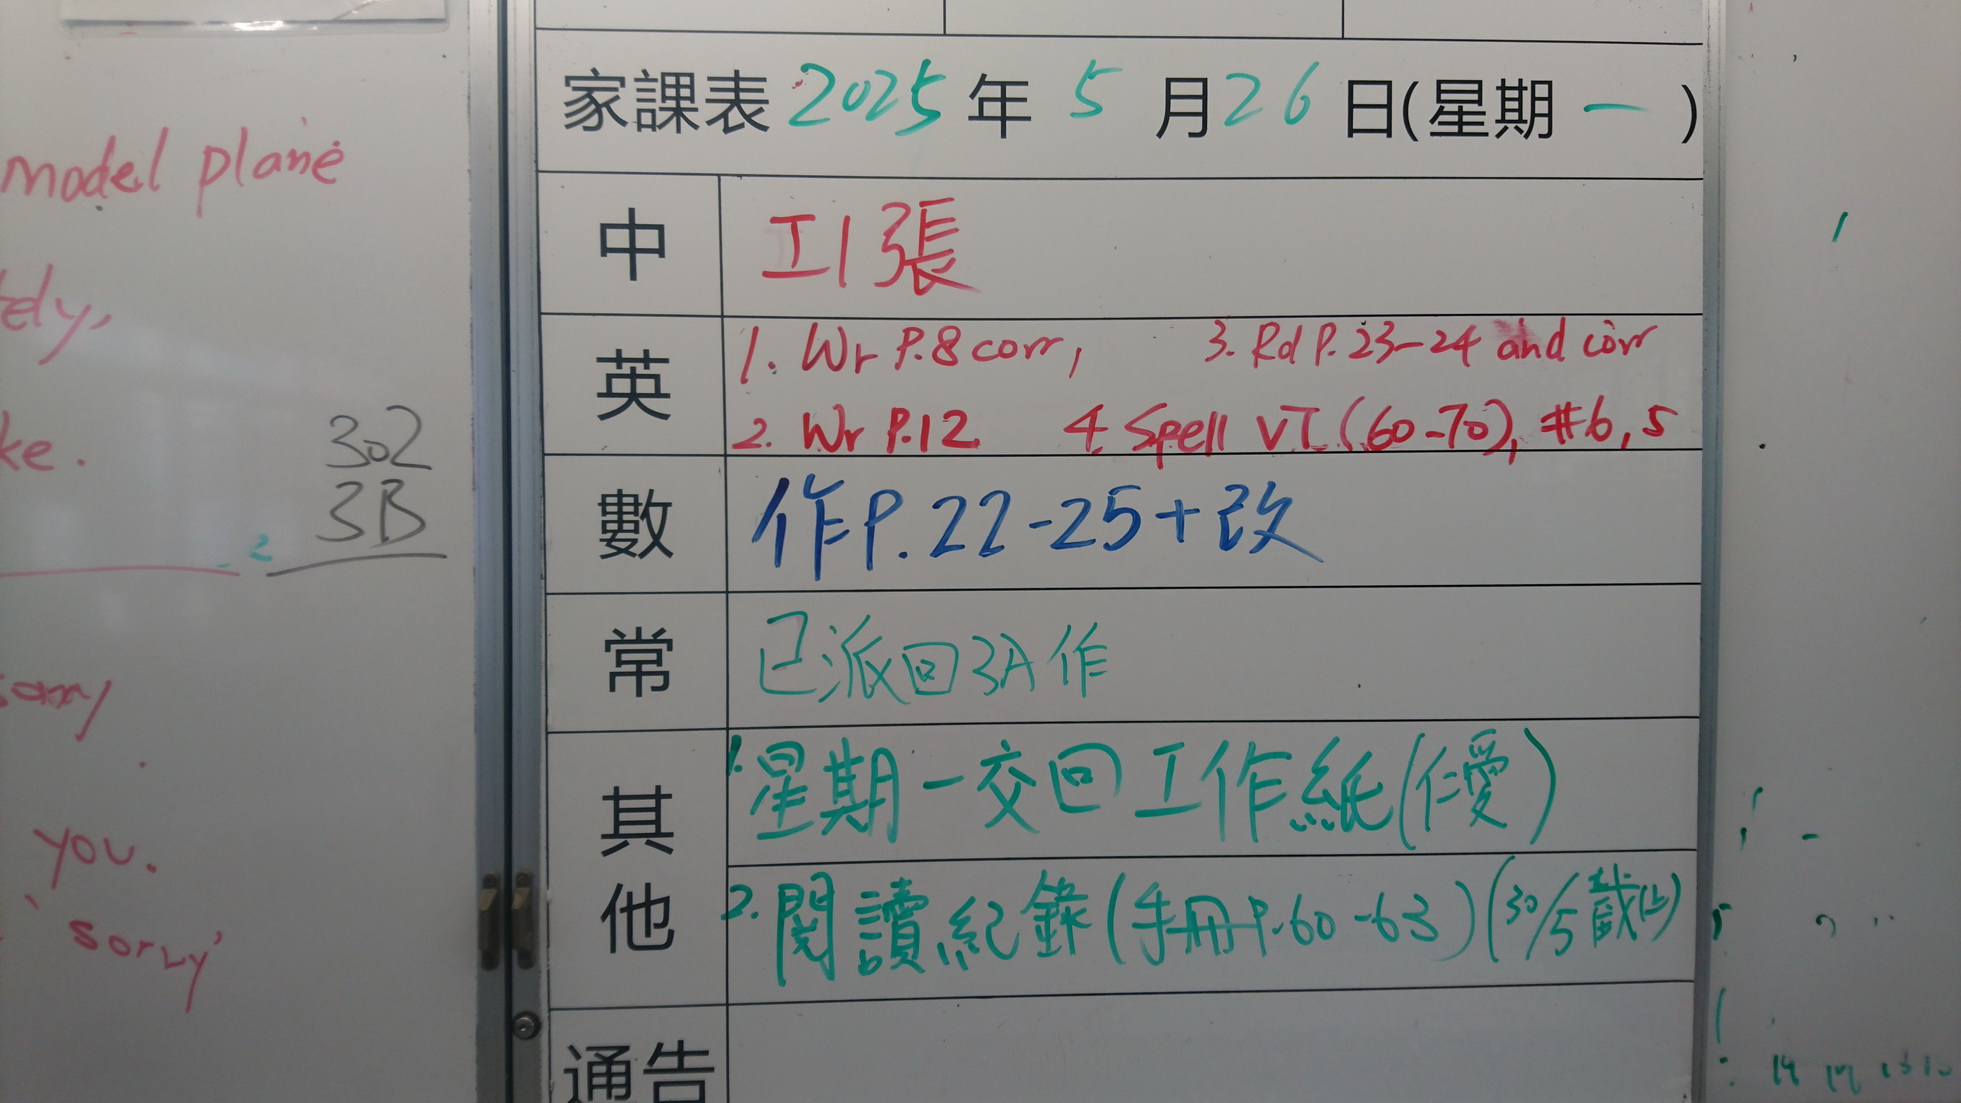 model plane
ke.
302
3B
2
sorry
you.
'sorry'
家課表 2025 年 5 月 26 日(星期 一 )
中 工1張
英 1. Wr P.8 corr, 3. Rd P.23-24 and corr
2. Wr P.12 4. Spell VT (60-70), #6, 5
數 作P.22-25+改
常 已派回3A作
其他 1. 星期一交回工作紙(仁愛)
2. 閱讀紀錄(手冊P.60-63)(30/5截止)
通告